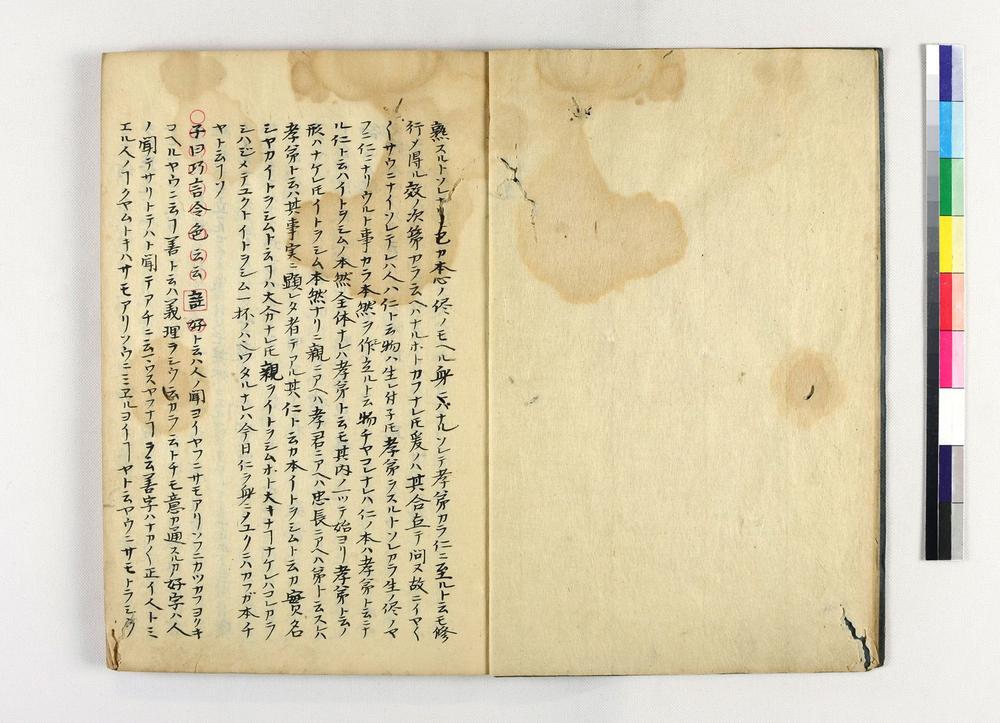 熟スルトソレナリ已カ本心ノ侭ノモヘル身ニハナルソレテ孝弟カラ仁ニ至ルト云モ修
行メ得ル效ノ次第カラ云ヘハナルホトカフナレ𪜈爰ノハ其合点テ問ヌ故ニイヤ〱
〱サウニナイソレテレハ人ハ仁ト云物ハ生レ付子𪜈孝弟ヲスルトソレカラ生ノ侭ノヤ
フニ仁ニナリウルト事カラ本然ヲ作立ルト云物チヤコレナレハ仁ノ本ハ孝弟ト云ニナ
ル仁ト云ハイトヲシムノ本然全体ナレハ孝弟ト云モ其内ノ一ツテ始ヨリ孝弟ト云ノ
形ハナケレ𪜈イトヲシム本然ナリニ親ニアヘハ孝君ニアヘハ忠長ニアヘハ弟ト云スベ
孝弟ト云ハ其事実ニ顕レタ者テアル其仁ト云カ本イトヲシムト云カ實タ名
シヤカイトヲシムト云ヿハ大分ナレ𪜈親ヲイトヲシムホト大キナヿナケレハコレカラ
シハジメテユクトイトヲシム一杯ノハヘワタルナレハ今日仁ヲ身ニメユクニハカフガ本チ
ヤト云ヿソ
子曰巧言令色云云 註 好ト云ハ人ノ聞ヨイヤフニサモアリソフニカツカフヨリキ
コヘルヤウニ云ヿ善ト云ハ義理ヲシウ云カラ云トチモ意カ通スルカ好字ハ人
ノ聞テサリトテハト聞テアチニ云ニウスヤフナヿヲ云善字ハナカ〱正イ人トミ
エル人ノヿクヤムトキハサモアリソウニミエルヨイヿヤト云ヤウニサモトラシク